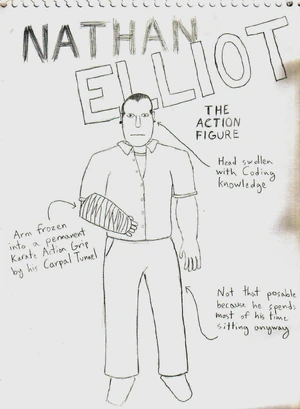 NATHAN
ELLIOT
THE
ACTION
FIGURE
Head swollen
with Coding
knowledge
Arm frozen
into a permanent
Karate Action Grip
by his Carpal Tunnel
Not that posable
because he spends
most of his time
sitting anyway